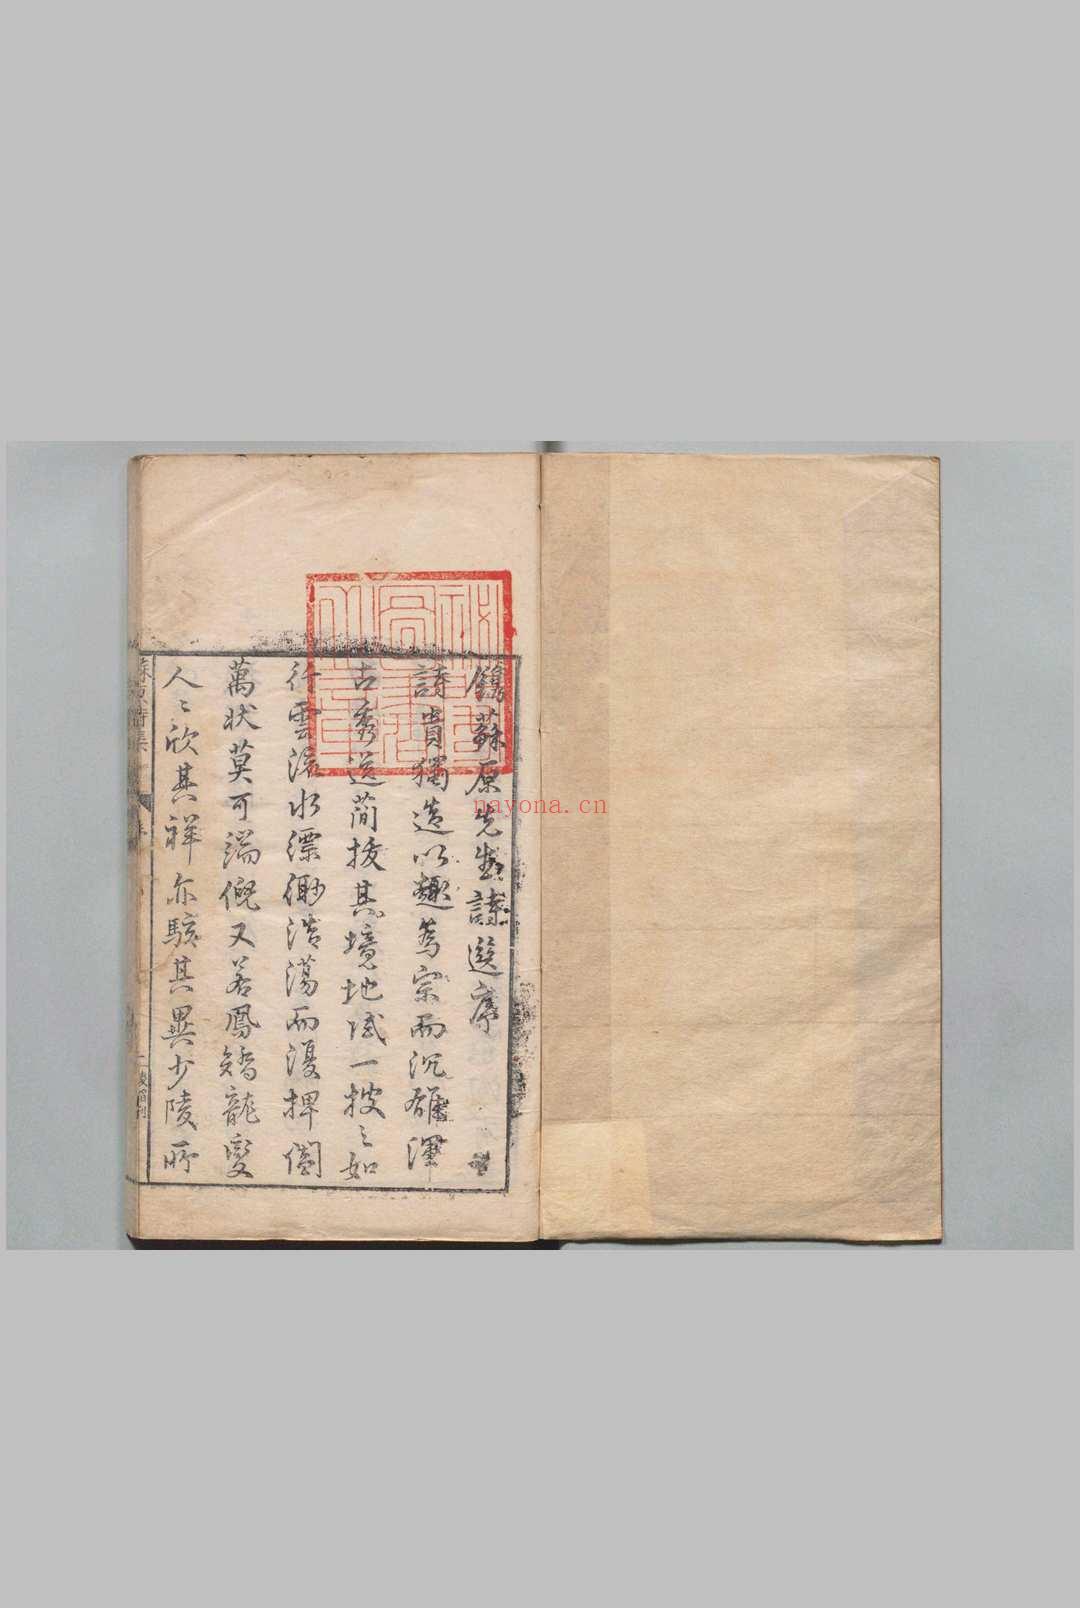 鐫蘇原先生詩選序
詩貴獨造以趣為宗而沉雄渾
古秀逸簡拔其境地咸一披〻如
行雲流水漂緲浩蕩而漫捭闔
萬狀莫可端倪又若鳳矯龍變
人〻欣其祥亦駭其異少陵所
nayona.cn